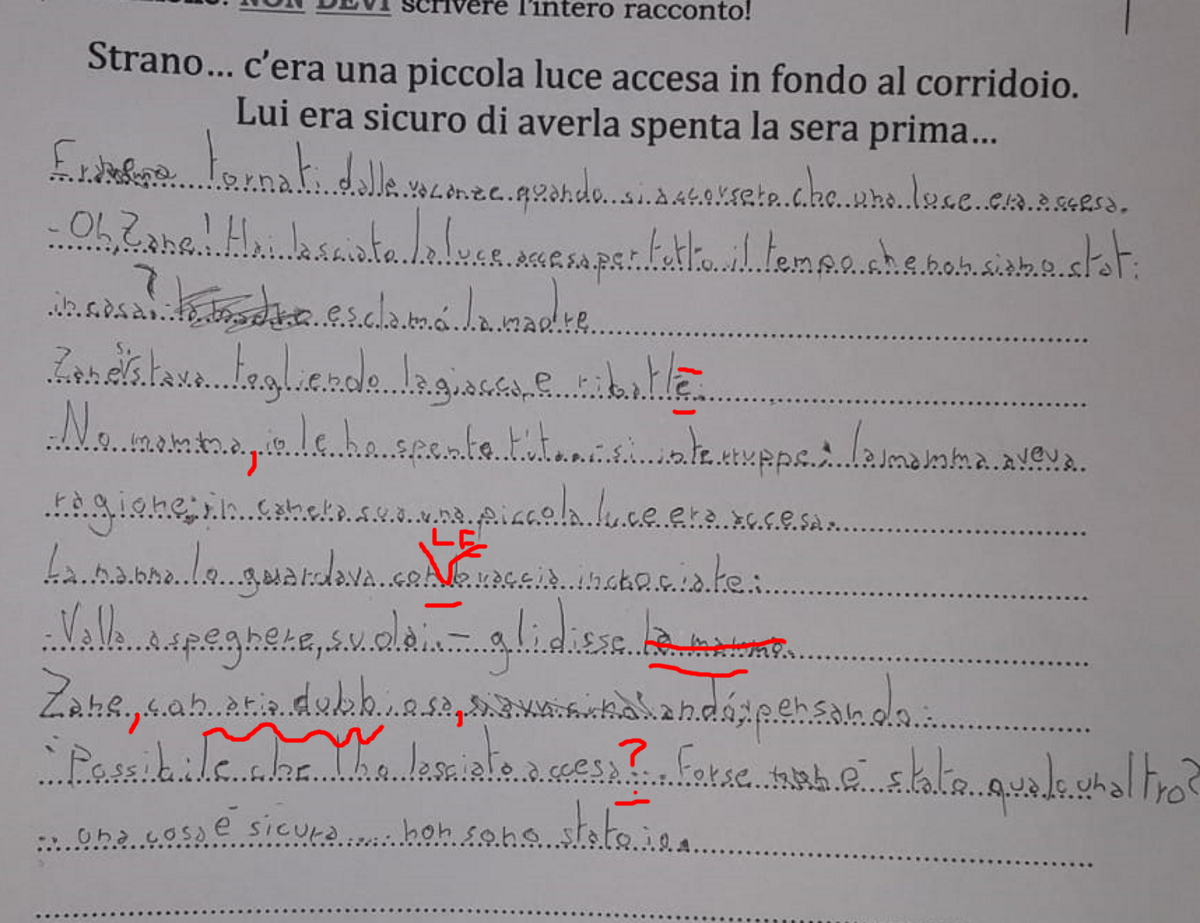 NON DEVI scrivere l'intero racconto!
Strano... c'era una piccola luce accesa in fondo al corridoio.
Lui era sicuro di averla spenta la sera prima...
tornati dalle vacanze quando si accorsero che una luce era accesa.
- Oh, Zane! Hai lasciato la luce accesa per tutto il tempo che non siamo stati
in casa? esclamá la madre
Zane si stava togliendo la giacca e ribatté:
- No mamma, io le ho spente tut... - si interruppe: la mamma aveva
ragione: in camera sua una piccola luce era accesa.
La mamma lo guardava con LE braccia incrociate:
- Valla a spegnere, su dai. - gli disse la mamma.
Zane, con aria dubbiosa, andó, pensando:
"Possibile che l'ho lasciato accesa? Forse é stato qualcun altro?
... una cosa é sicura..... non sono stato io.